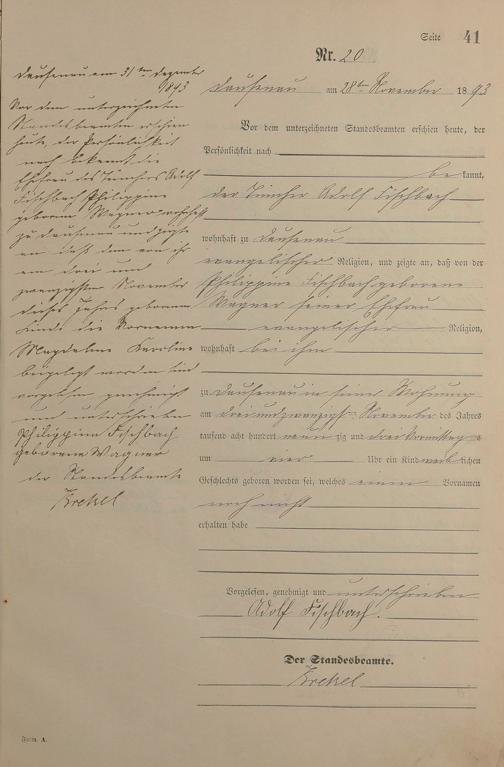 Seite 41
Nr. 20
Dausenau am 28ten November 1893
Vor dem unterzeichneten Standesbeamten erschien heute, der
Persönlichkeit nach
be kannt,
der Tüncher Adolf Fischbach
wohnhaft zu Dausenau
evangelischer Religion, und zeigte an, daß von der
Philippine Fischbach geborene
Wagner seiner Ehefrau
evangelischer Religion,
wohnhaft bei ihm
zu Dausenau in seiner Wohnung
am dreiundzwanzigsten November des Jahres
tausend acht hundert neunzig und drei Vormittags
um vier Uhr ein Kind weiblichen
Geschlechts geboren worden sei, welches einen Vornamen
noch nicht
erhalten habe
Vorgelesen, genehmigt und unterschrieben
Adolf Fischbach.
Der Standesbeamte.
Krekel
Dausenau am 31ten Dezember
1893
Vor dem unterzeichneten
Standesbeamten erschien
heute, der Persönlichkeit
nach bekannt, die
Ehefrau des Tünchers Adolf
Fischbach Philippine
geborene Wagner wohnhaft
zu Dausenau und zeigte
an daß dem von ihr
am drei und
zwanzigsten November
dieses Jahres geborenen
Kinde die Vornamen
Magdeline Karoline
beigelegt worden sind
vorgelesen, genehmigt
und unterschrieben
Philippina Fischbach
geborene Wagner
der Standesbeamte
Krekel
Form. A.